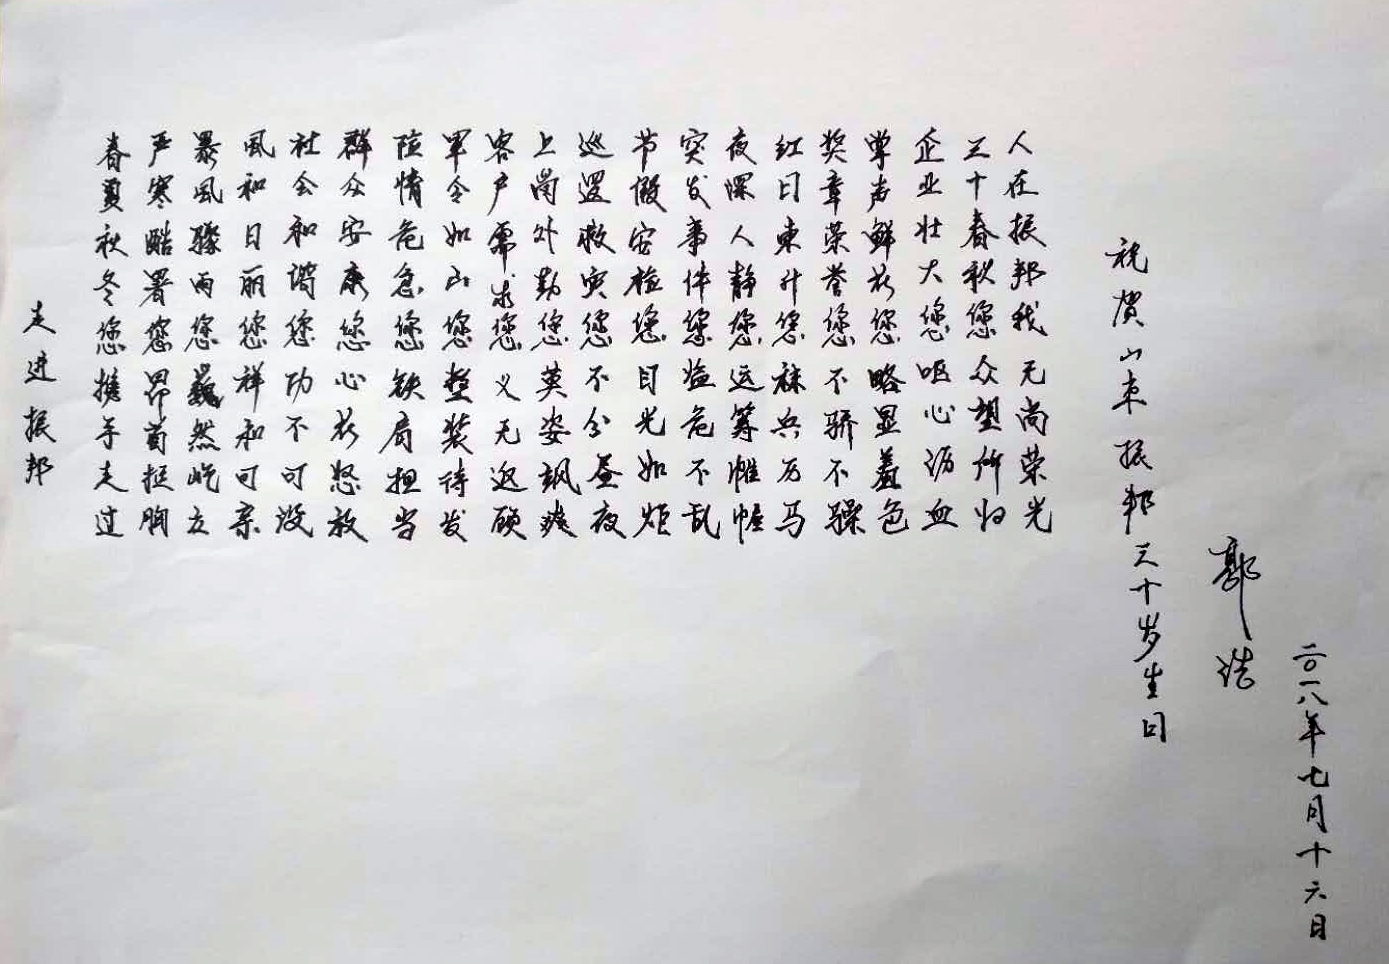 走进振邦
春夏秋冬您携手走过
严寒酷署您昂首挺胸
暴风骤雨您巍然屹立
风和日丽您祥和可亲
社会和谐您功不可没
群众安康您心花怒放
险情危急您铁肩担当
军令如山您整装待发
客户需求您义无返顾
上岗外勤您英姿飒爽
巡逻救灾您不分昼夜
节假安检您目光如炬
突发事件您临危不乱
夜深人静您运筹帷幄
红日东升您秣兵厉马
奖章荣誉您不骄不躁
掌声鲜花您略显羞色
企业壮大您呕心沥血
三十春秋您众望所归
人在振邦我无尚荣光
祝贺山东振邦三十岁生日
郭浩
二〇一八年七月十六日